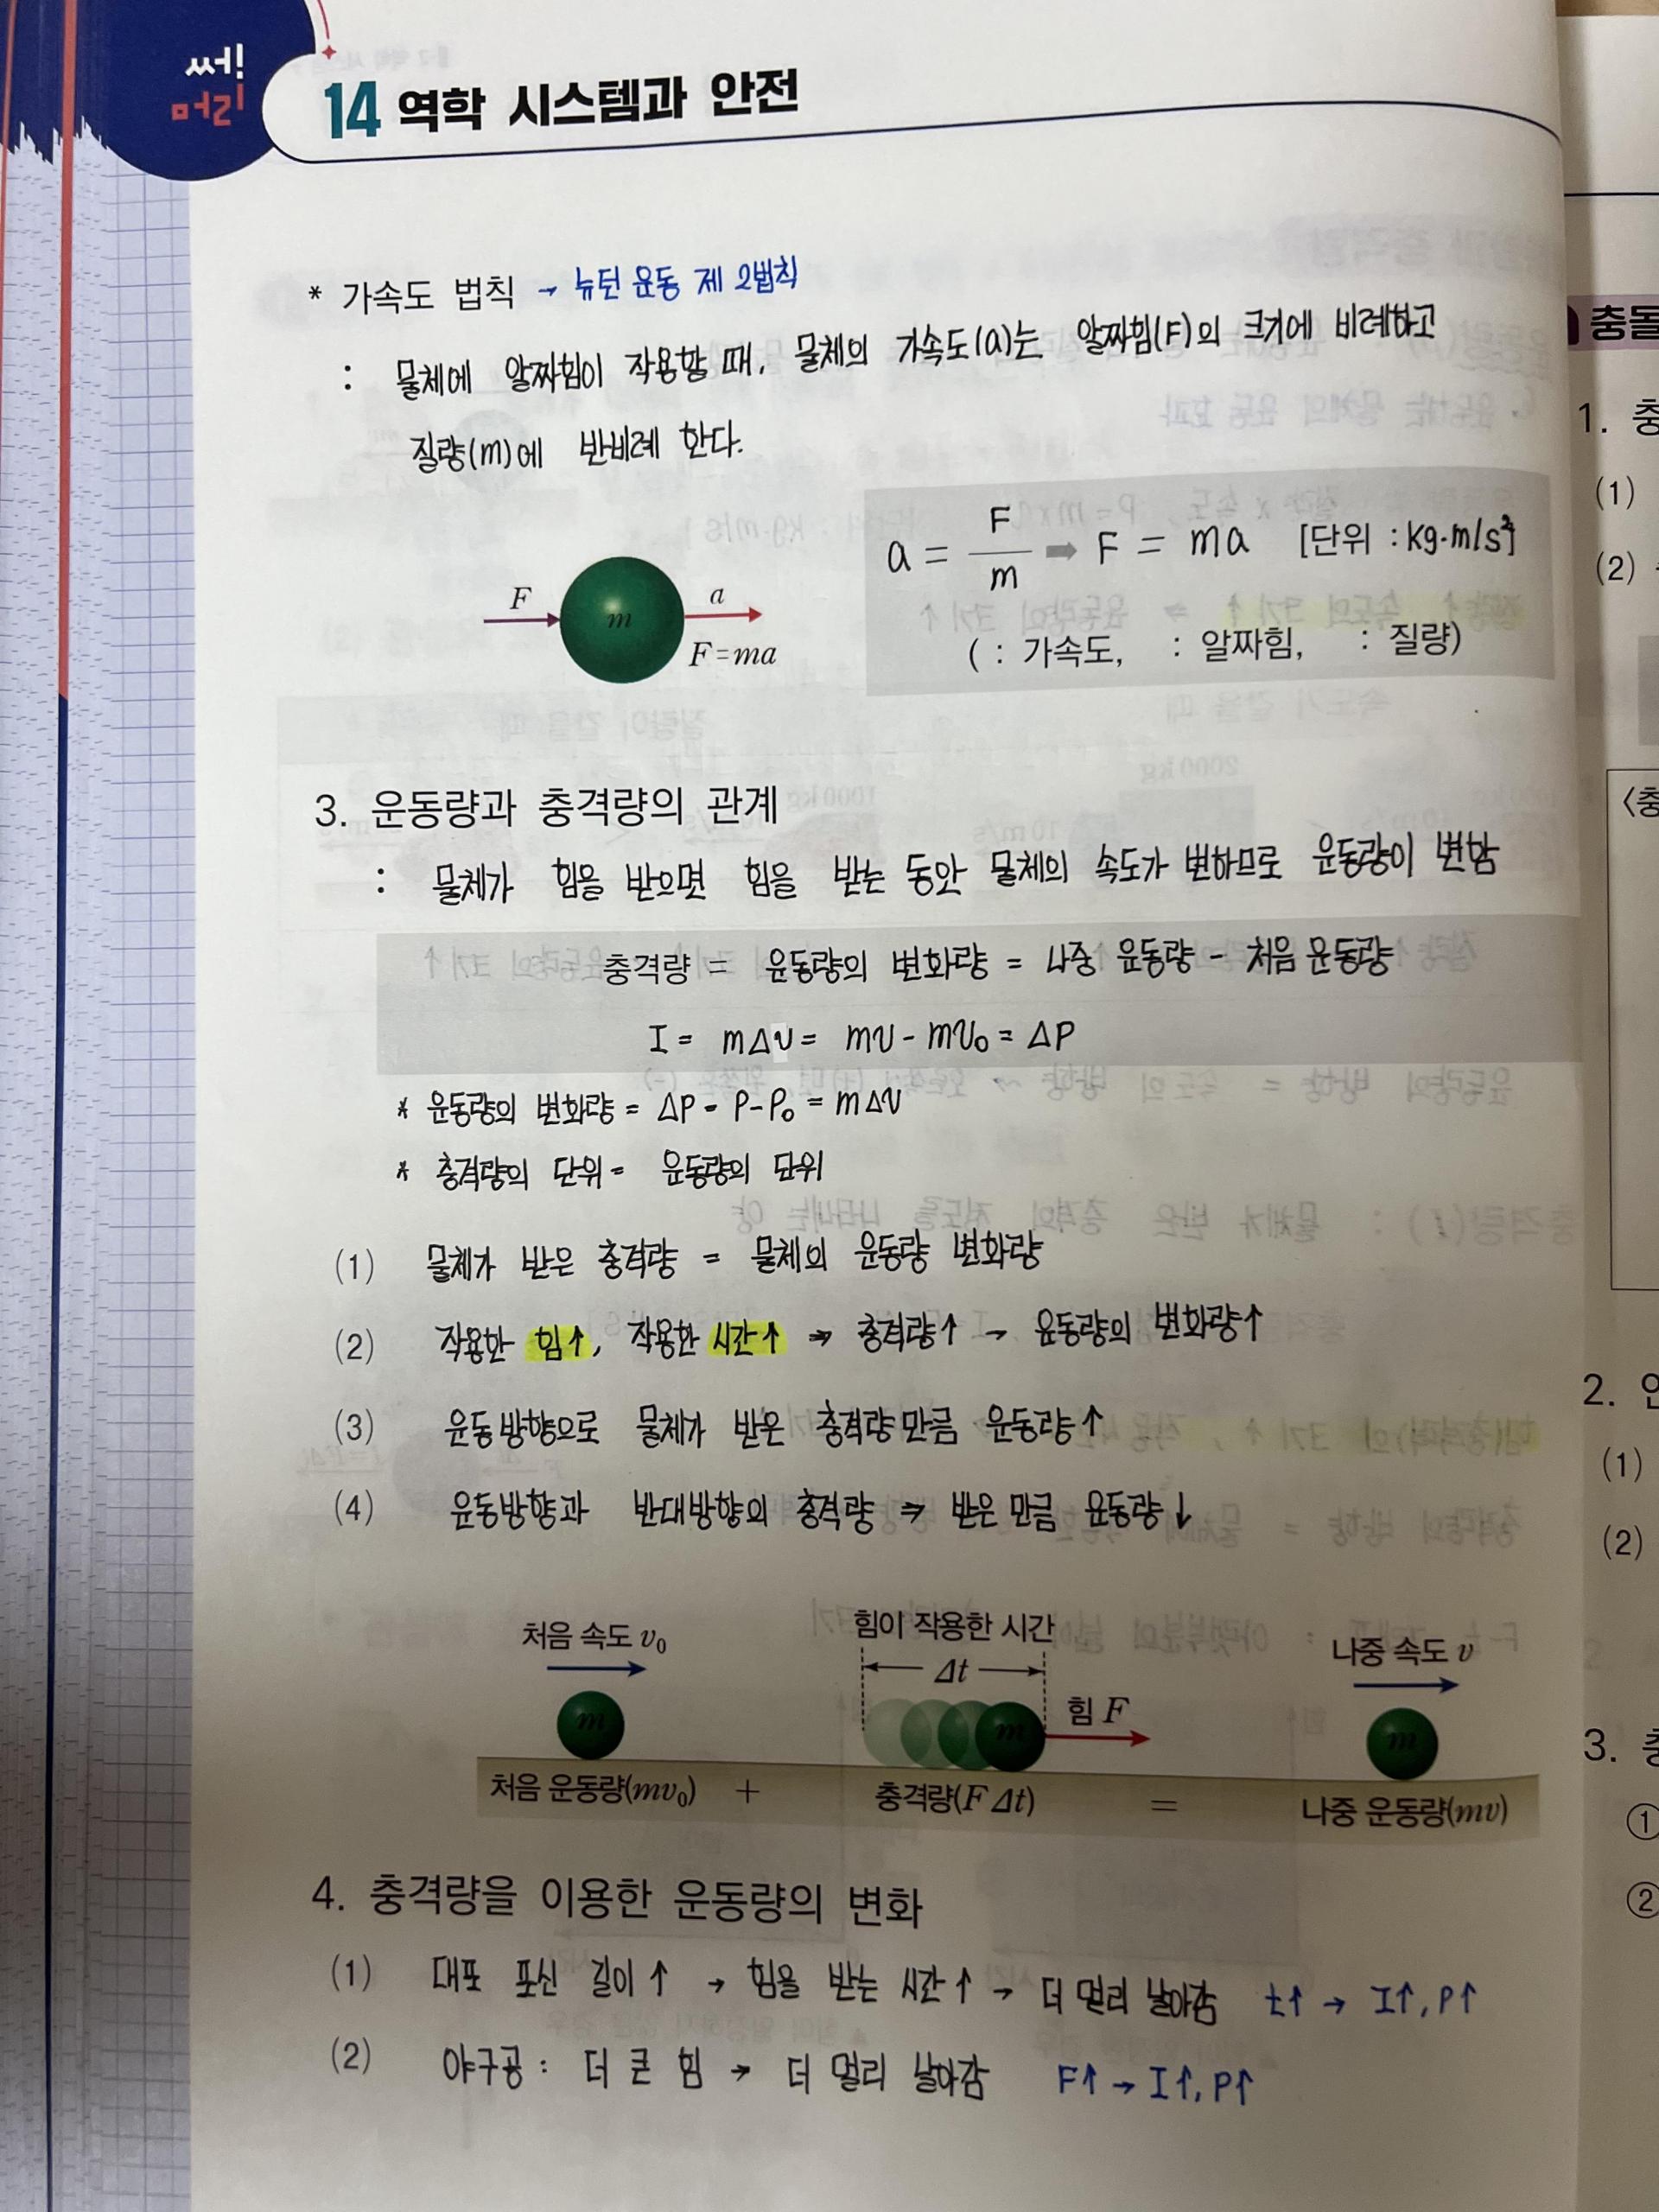 쎄!
머리
14 역학 시스템과 안전
* 가속도 법칙 → 뉴턴 운동 제 2법칙
: 물체에 알짜힘이 작용할 때, 물체의 가속도(a)는 알짜힘(F)의 크기에 비례하고
질량(m)에 반비례 한다.
a = F/m ➡ F = ma [단위 : kg·m/s²]
( : 가속도, : 알짜힘, : 질량)
F m a
F=ma
3. 운동량과 충격량의 관계
: 물체가 힘을 받으면 힘을 받는 동안 물체의 속도가 변하므로 운동량이 변함
충격량 = 운동량의 변화량 = 나중 운동량 - 처음 운동량
I = m△v = mv - mv₀ = △P
* 운동량의 변화량 = △P = P-P₀ = m△v
* 충격량의 단위 = 운동량의 단위
(1) 물체가 받은 충격량 = 물체의 운동량 변화량
(2) 작용한 힘↑, 작용한 시간↑ ⇒ 충격량↑ → 운동량의 변화량↑
(3) 운동방향으로 물체가 받은 충격량만큼 운동량↑
(4) 운동방향과 반대방향의 충격량 ⇒ 받은 만큼 운동량↓
처음 속도 v₀ 힘이 작용한 시간 나중 속도 v
Δt
힘 F
m m m
처음 운동량(mv₀) + 충격량(FΔt) = 나중 운동량(mv)
4. 충격량을 이용한 운동량의 변화
(1) 대포 포신 길이↑ → 힘을 받는 시간↑ → 더 멀리 날아감 t↑ → I↑, P↑
(2) 야구공 : 더 큰 힘 → 더 멀리 날아감 F↑ → I↑, P↑
충돌
1. 충
(1)
(2)
〈충
2. 안
(1)
(2)
3. 충
①
②